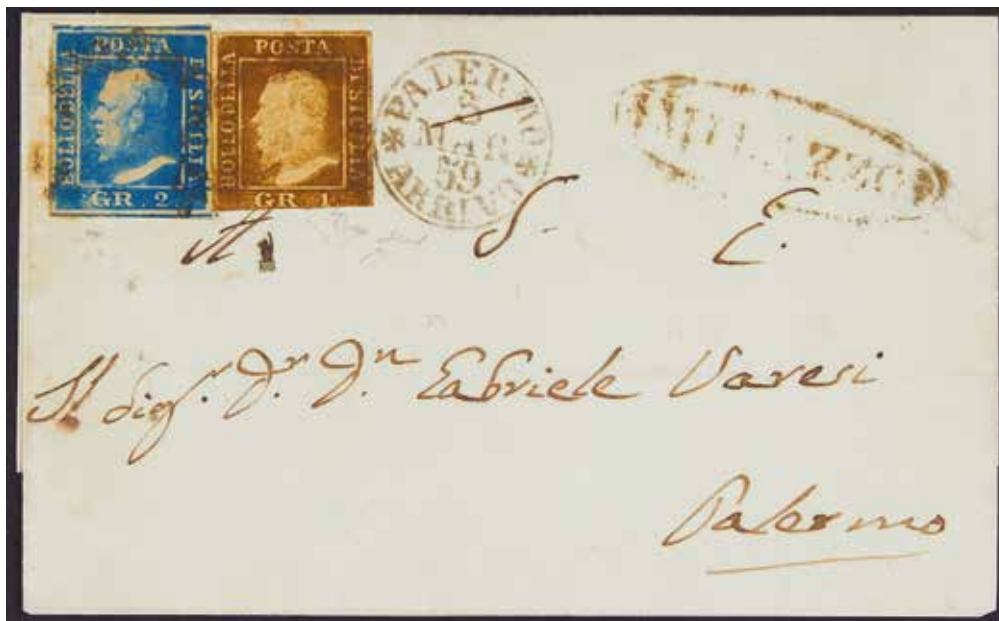 POSTA
BOLLO DELLA
DI SICILIA
GR. 2
POSTA
BOLLO DELLA
DI SICILIA
GR. 1.
PALERMO
8
MAR
59
ARRIVO
MILAZZO
A. S. E.
Il Sigr. Dr. Dn. Gabriele Varesi
Palermo